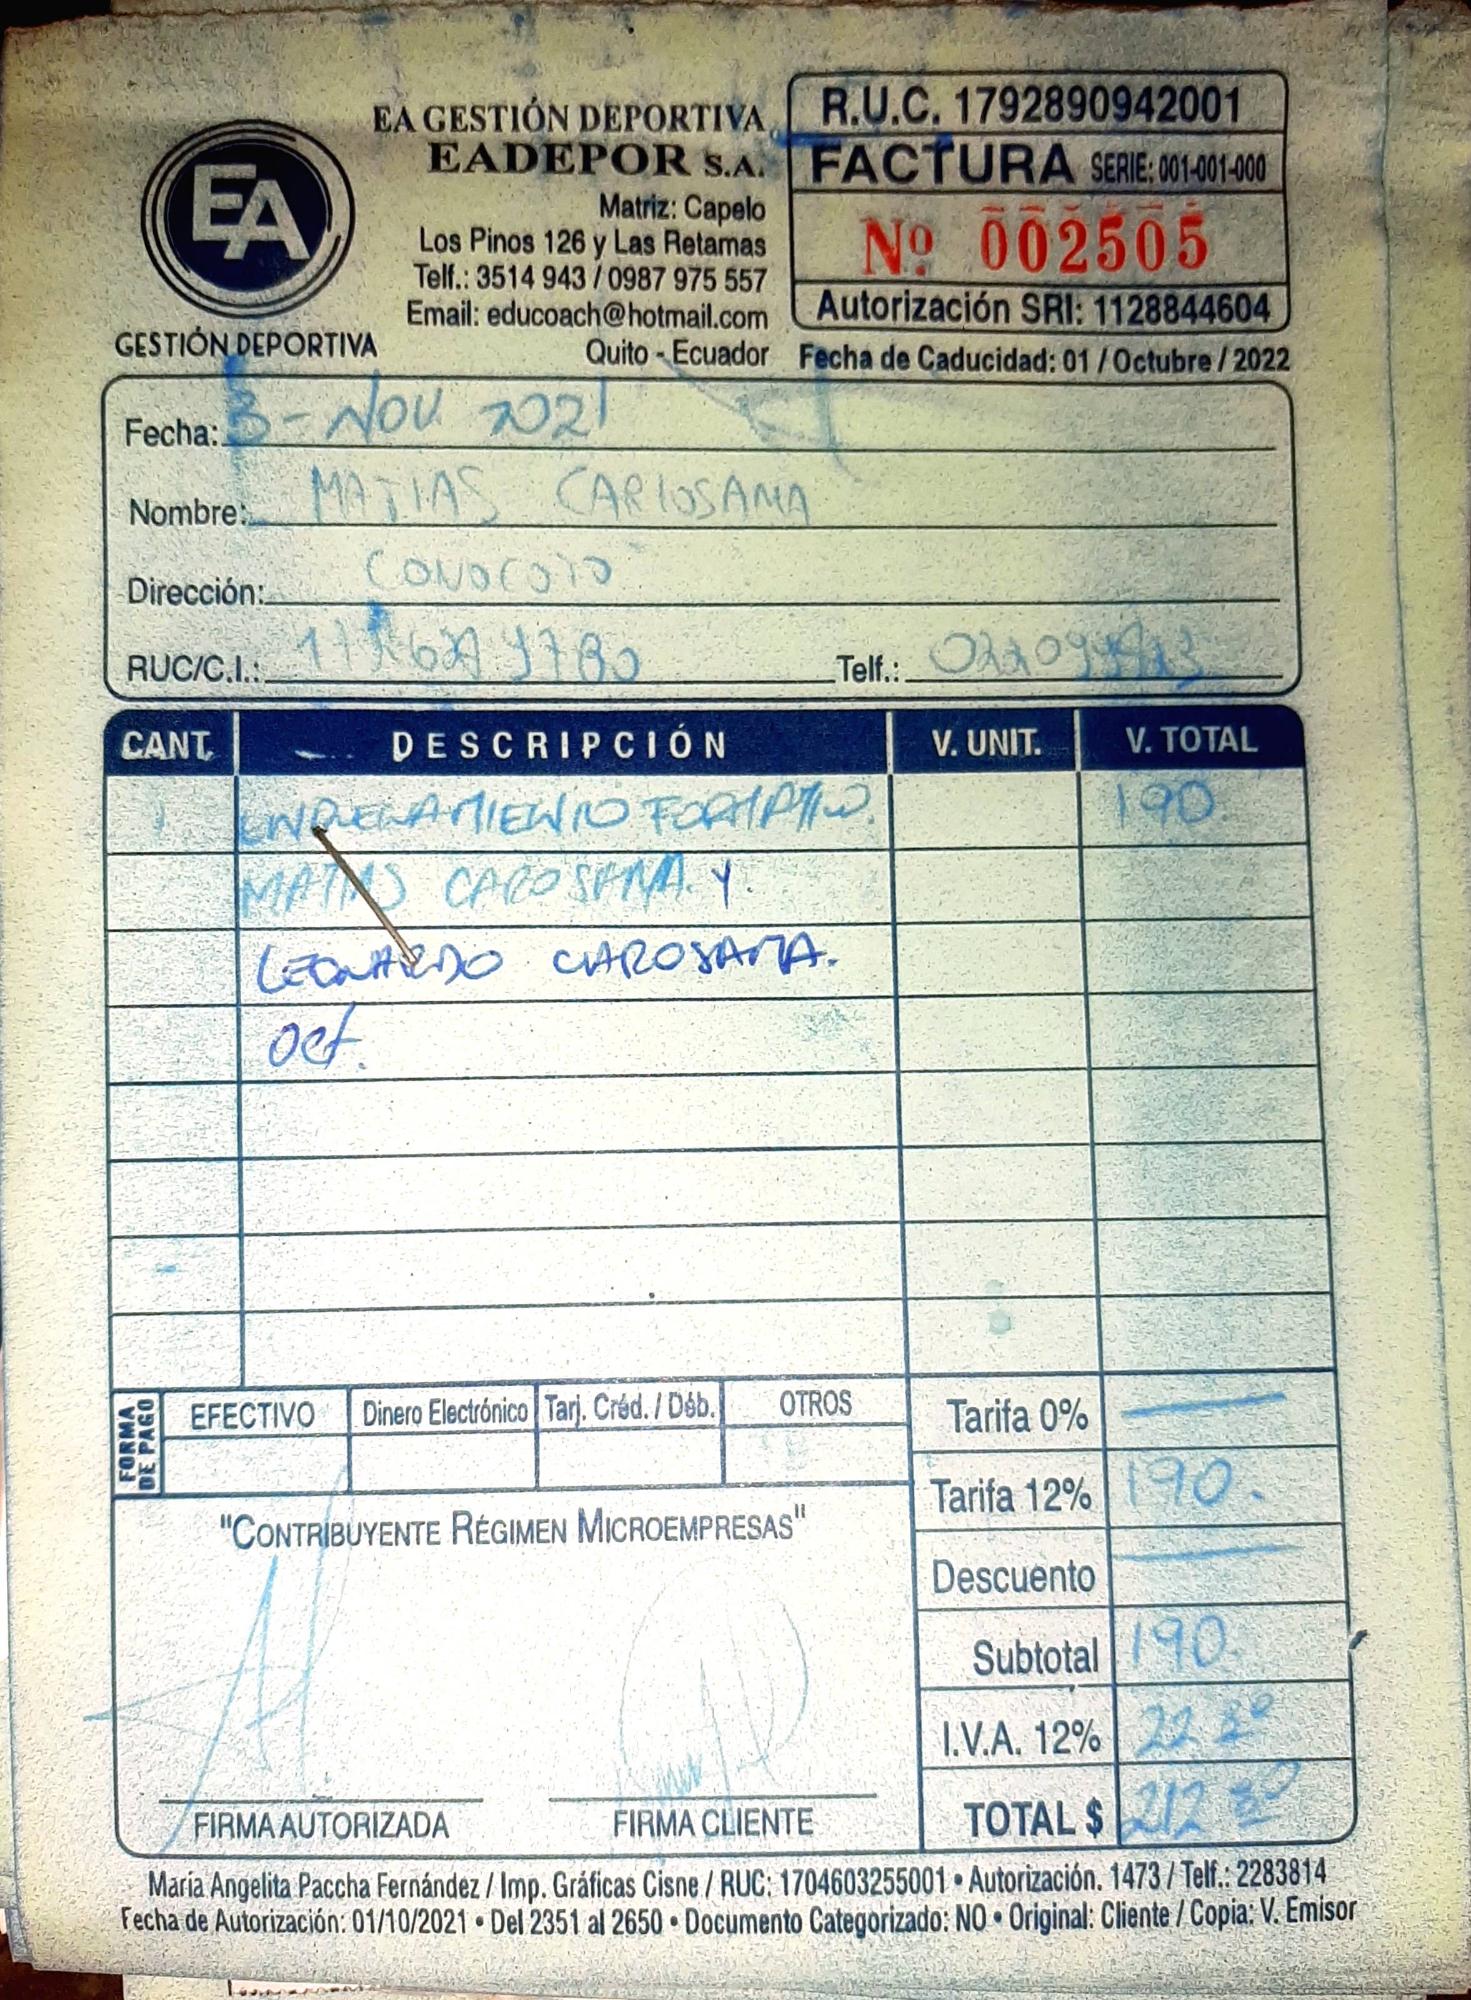 EA
GESTIÓN DEPORTIVA
EA GESTIÓN DEPORTIVA
EADEPOR S.A.
Matriz: Capelo
Los Pinos 126 y Las Retamas
Telf.: 3514 943 / 0987 975 557
Email: educoach@hotmail.com
Quito - Ecuador
R.U.C. 1792890942001
FACTURA SERIE: 001-001-000
Nº 002505
Autorización SRI: 1128844604
Fecha de Caducidad: 01 / Octubre / 2022
Fecha: 3 - NOV 2021
Nombre: MATIAS CARLOSAMA
Dirección: CONOCOTO
RUC/C.I.:
Telf.:
CANT. DESCRIPCIÓN V. UNIT. V. TOTAL
1 ENTRENAMIENTO FORMATIVO. 190.
MATIAS CAROSAMA. Y.
LEONARDO CAROSAMA.
OCT.
FORMA DE PAGO
EFECTIVO Dinero Electrónico Tarj. Créd. / Déb. OTROS
Tarifa 0%
Tarifa 12% 190.
Descuento
Subtotal 190.
I.V.A. 12% 22 80
TOTAL $ 212 80
"CONTRIBUYENTE RÉGIMEN MICROEMPRESAS"
FIRMA AUTORIZADA FIRMA CLIENTE
María Angelita Paccha Fernández / Imp. Gráficas Cisne / RUC: 1704603255001 • Autorización. 1473 / Telf.: 2283814
Fecha de Autorización: 01/10/2021 • Del 2351 al 2650 • Documento Categorizado: NO • Original: Cliente / Copia: V. Emisor